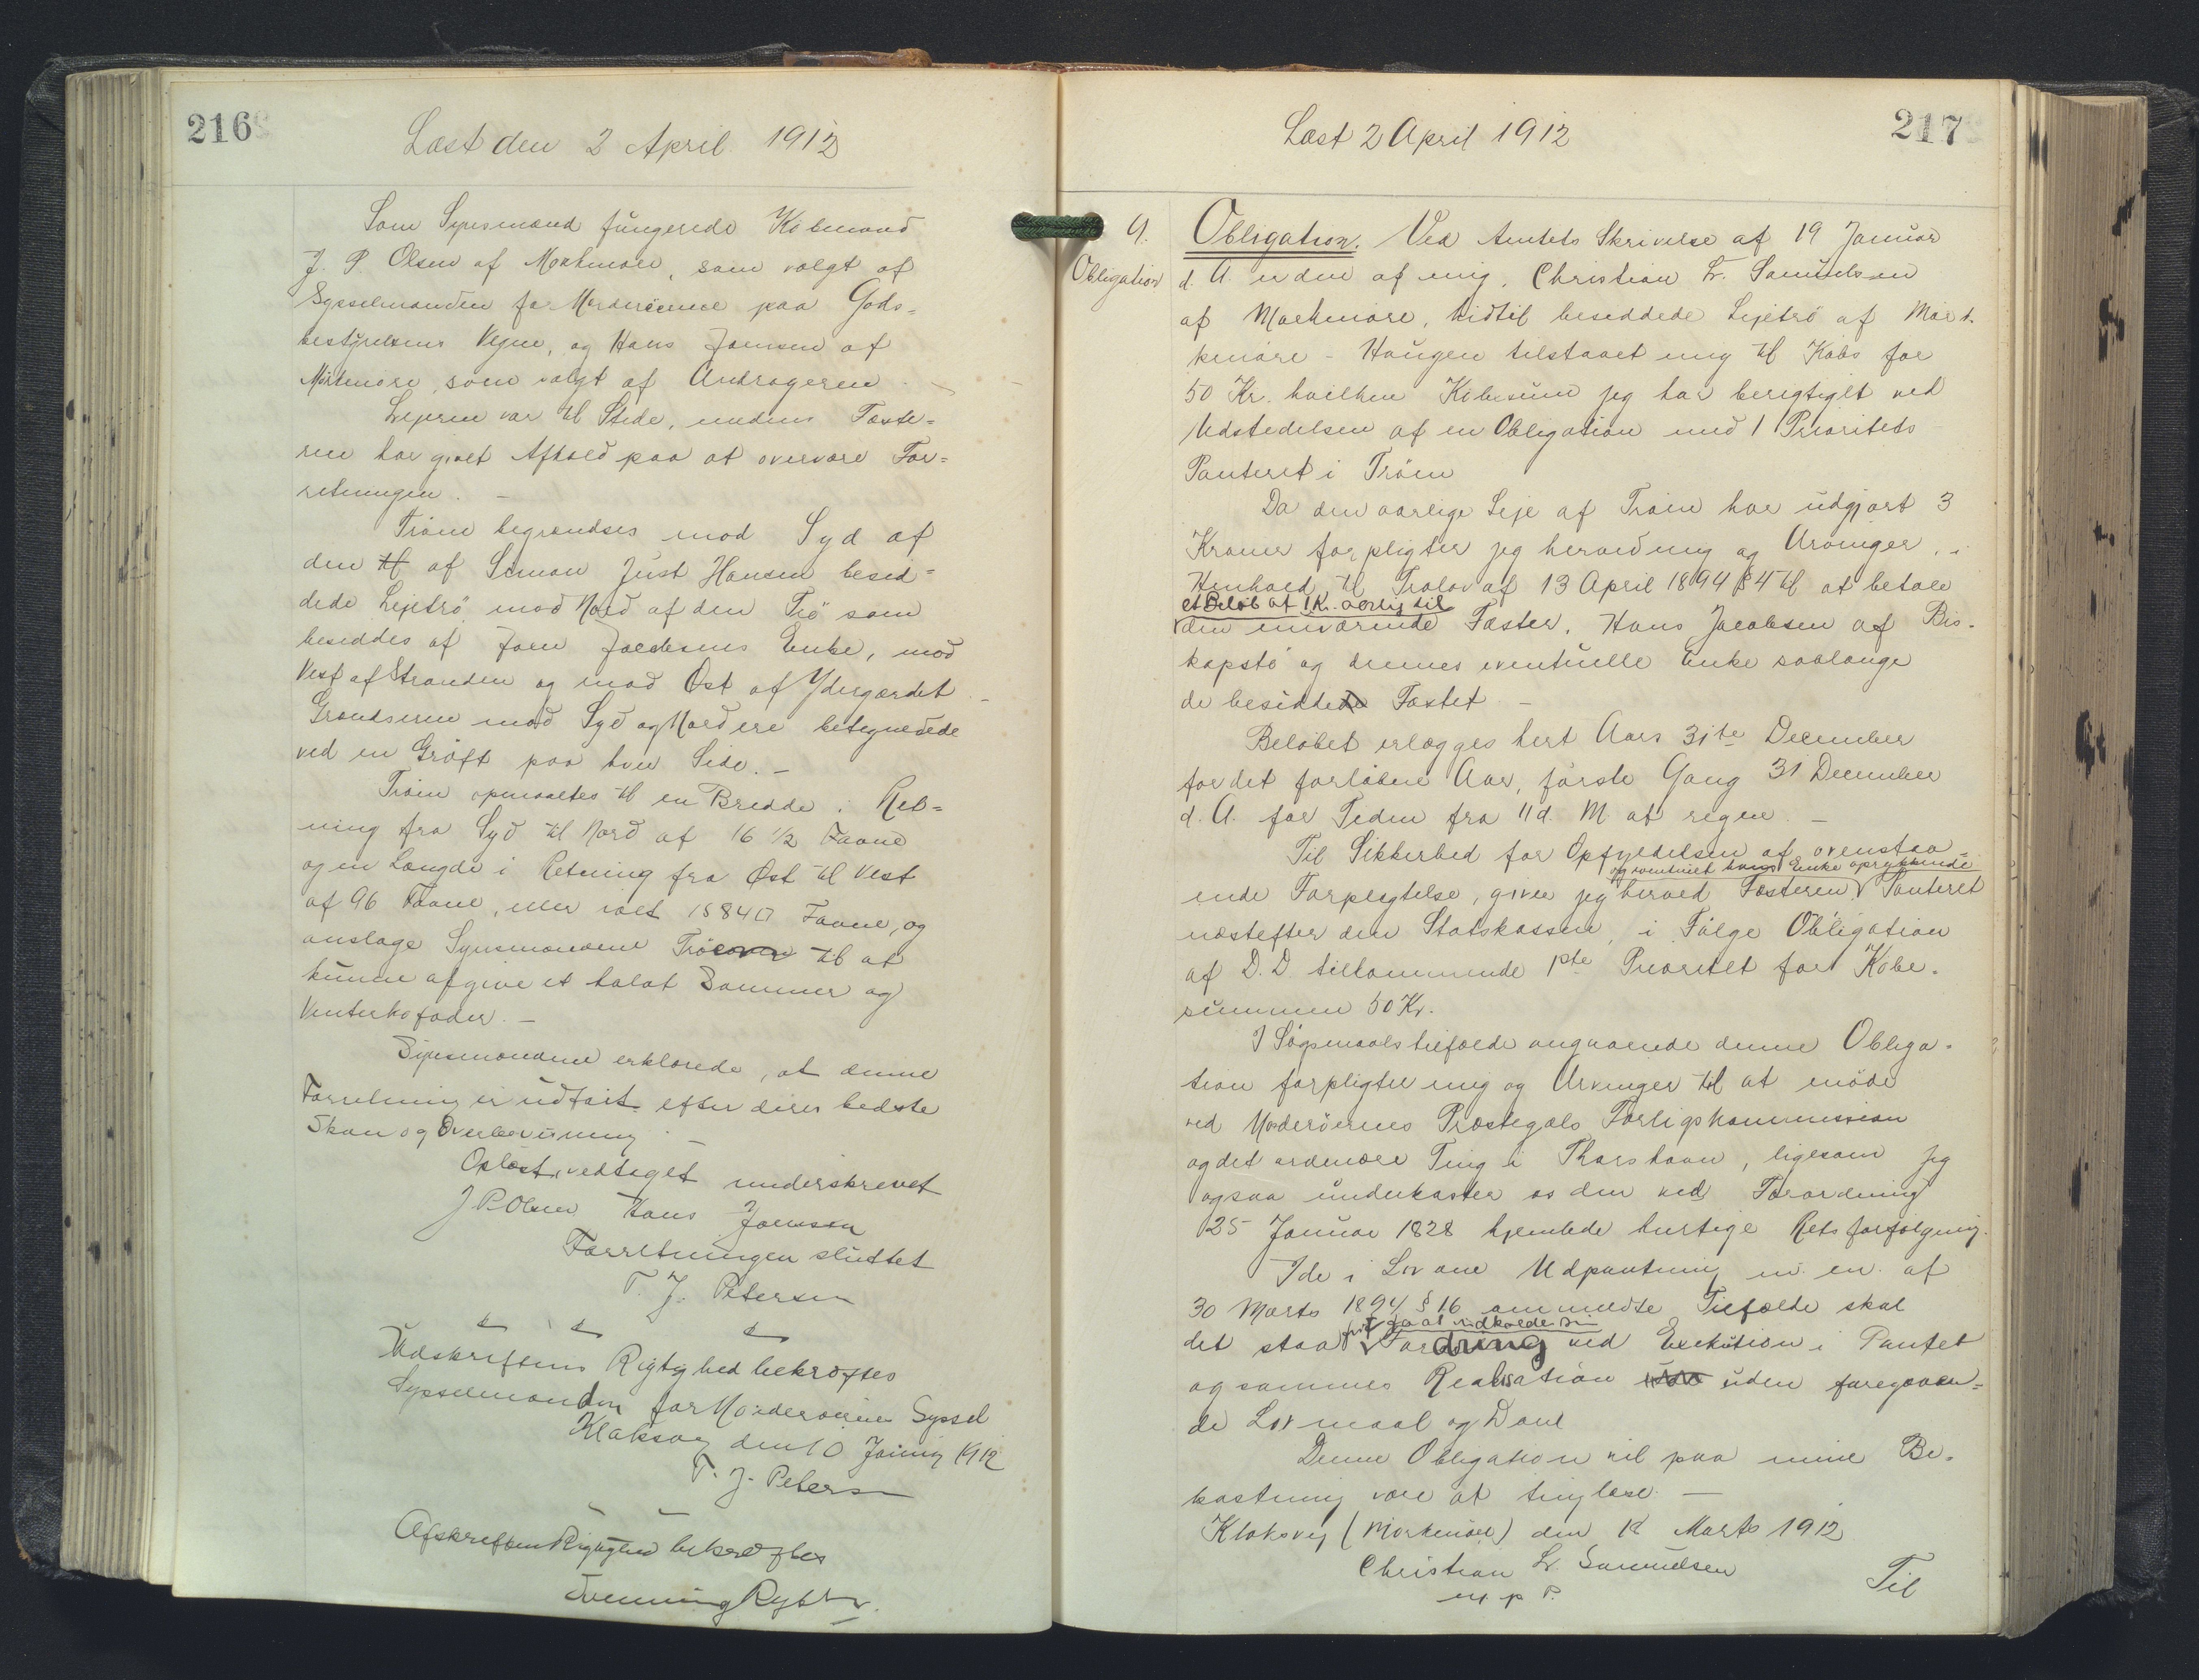 216
Læst den 2 April 1912
Som Synsmænd fungerede Købmand
J. P. Olsen af Morkinore, som valgt af
Sysselmanden for Norderöerne paa Gods=
bestyrelsens Vegne, og Hans Joensen af
Mörkinore, som valgt af Andrageren.
Lejeren var til Stede, medens Fæste=
ren har givet Afkald paa at overvære For=
retningen. –
Tröen begrændses mod Syd af
den af Simon Just Hansen besid=
dede Lejetrö mod Nord af den Trö som
besiddes af Joen Enke, mod
Vest af Stranden og mod Öst af Ydregærdet –
Grændserne mod Syd og Nord ere betegnede
ved en Gröft paa hver Side. –
Tröen opmaaltes til en Bredde i Ret=
ning fra Syd til Nord af 16 1/2 Favne
og en Længde i Retning fra Öst til Vest
af 96 Favne, eller ialt 1584 □ Favne, og
anslage Synsmændene Tröen til at
kunne afgive et halvt Sommer og
Vinterkofoder. –
Synsmændene erklærede, at denne
Forretning er udfört efter deres bedste
Skøn og Overbevisning –
Oplæst, vedtaget underskrevet
J P Olsen Hans Joensen
Forretningen sluttet
T. J. Petersen
Udskriftens Rigtighed bekræftes
Sysselmanden for Norderöernes Syssel
Klaksvig den 10 Januar 1912
T. J. Petersen
Afskriftens Rigtighed bekræftes
Svenning Rytter.
217
Læst 2 April 1912
9.
Obligation
Obligation. Ved Amtets Skrivelse af 19 Januar
d. A. er den af mig, Christian L. Samuelsen
af Morkinore, hidtil besiddede Lejetrö af Mör-
kinöre – Haugen tilstaaet mig til Köbs for
50 Kr. hvilken Köbesum jeg har berigtiget ved
Udstedelsen af en Obligation med 1 Prioritets
Panteret i Tröen
Da den aarlige Leje af Tröen har udgjort 3
Kroner forpligter jeg herved mig og Arvinger, i
Henhold til Trölov af 13 April 1894 § 4 til at betale
et Beløb af 1 Kr. aarlig til
den nuværende Fæster, Hans Jacobsen af Bis-
kopstö og dennes eventuelle Enke saalænge
de besidde Fæstet –
Belöbet erlægges hert Aars 31te December
for det forlöbne Aar, förste Gang 31 December
d. A. for Tiden fra 11 d. M. at regne. –
Til Sikkerhed for Opfyldelsen af ovenstaa=
og eventuelt hans Enke oprykkende
ende Forpligtelse, giver jeg herved Fæsteren Panteret
næstefter den Statskassen, i Fölge Obligation
af D. D. tilkommende 1ste Prioritet for Köbe-
summen 50 Kr.
I Sögsmaalstilfælde angaaende denne Obliga-
tion forpligter mig og Arvinger til at möde
ved Norderöernes Præstegjælds Forligskommission
og det ordinære Ting i Thorshavn, ligesom jeg
ogsaa underkaster os den ved Forordning
25 Januar 1828 hjemlede hurtige Retsforfölgning.
I de i Lov om Udpantning m. en. af
30 Marts 1894 § 16 ommeldte Tilfælde skal
frit for at indkalde sin
det staa Fordring ved Exekution i Pantet
og sammes Realisation uden foregaaen=
de Lovmaal og Dom
Denne Obligation vil paa mine Be-
kostning være at tinglæse. –
Klaksvig (Morkinöre) den 18 Marts 1912
Christian L. Samuelsen
m. p. P.
Til